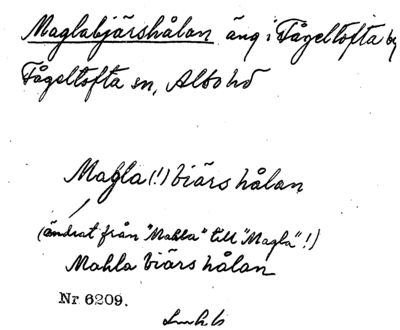 Maglabjärshålan äng i Fågeltofta by
Fågeltofta sn, Albo hd
Magla (!) biärs hålan
(ändrat från "Mahla" till "Magla"!)
Mahla biärs hålan
Nr 6209.